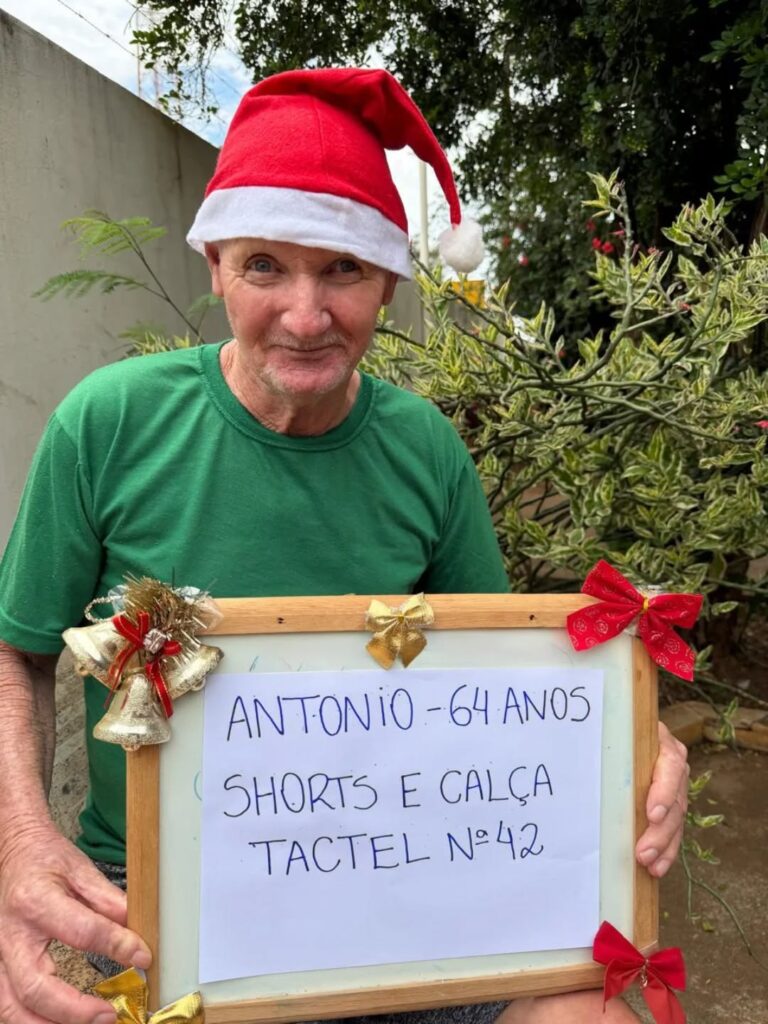 ANTONIO - 64 ANOS
SHORTS E CALÇA
TACTEL Nº 42